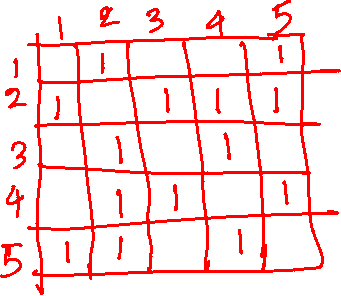 1 2 3 4 5
1 1 1
2 1 1 1 1
3 1 1
4 1 1 1
5 1 1 1